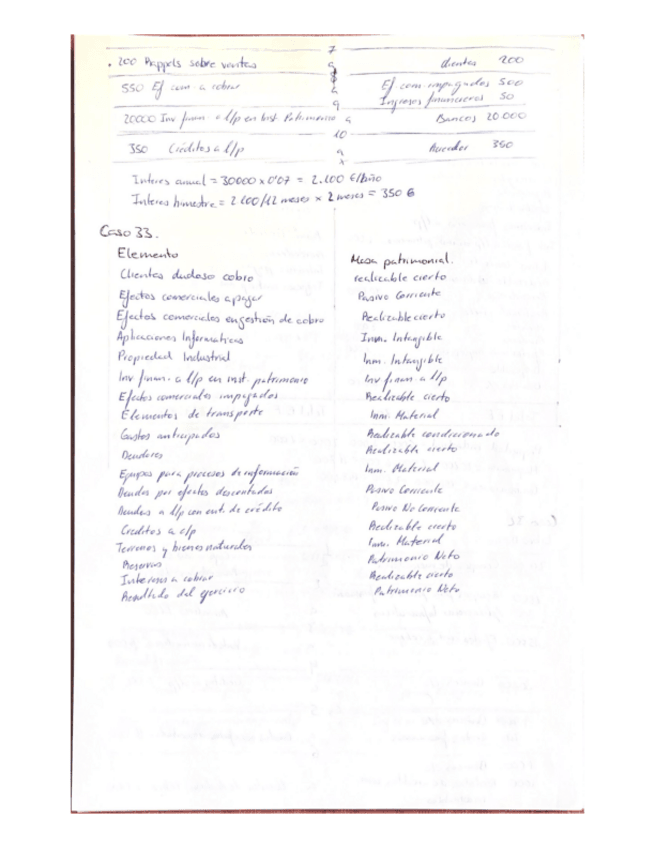 7
. 200 Rappels sobre ventas a Clientes 200
8
550 Ef com. a cobrar a Ef com. impagados 500
Ingresos financieros 50
9
20000 Inv finan. a l/p en inst Patrimonio a Bancos 20000
10
350 Créditos a l/p a Acreedor 350
x
Interes annual = 30000 x 0'07 = 2.100 €/Año
Interes bimestre = 2100/12 meses x 2 meses = 350 €
Caso 33.
Elemento Masa patrimonial.
Clientes dudoso cobro realizable cierto
Efectos comerciales a pagar Pasivo Corriente
Efectos comerciales en gestión de cobro Realizable cierto
Aplicaciones Informaticas Inm. Intangible
Propiedad Industrial Inm. Intangible
Inv finan. a l/p en inst. patrimonio Inv finan. a l/p
Efectos comerciales impagados Realizable cierto
Elementos de transporte Inm. Material
Gastos anticipados Realizable condicionado
Deudores Realizable cierto
Equipos para procesos de información Inm. Material
Deudas por efectos descontados Pasivo Corriente
Deudas a l/p con ent. de crédito Pasivo No Corriente
Creditos a c/p Realizable cierto
Terrenos y bienes naturales Inm. Material
Reservas Patrimonio Neto
Intereses a cobrar Realizable cierto
Resultado del ejercicio Patrimonio Neto